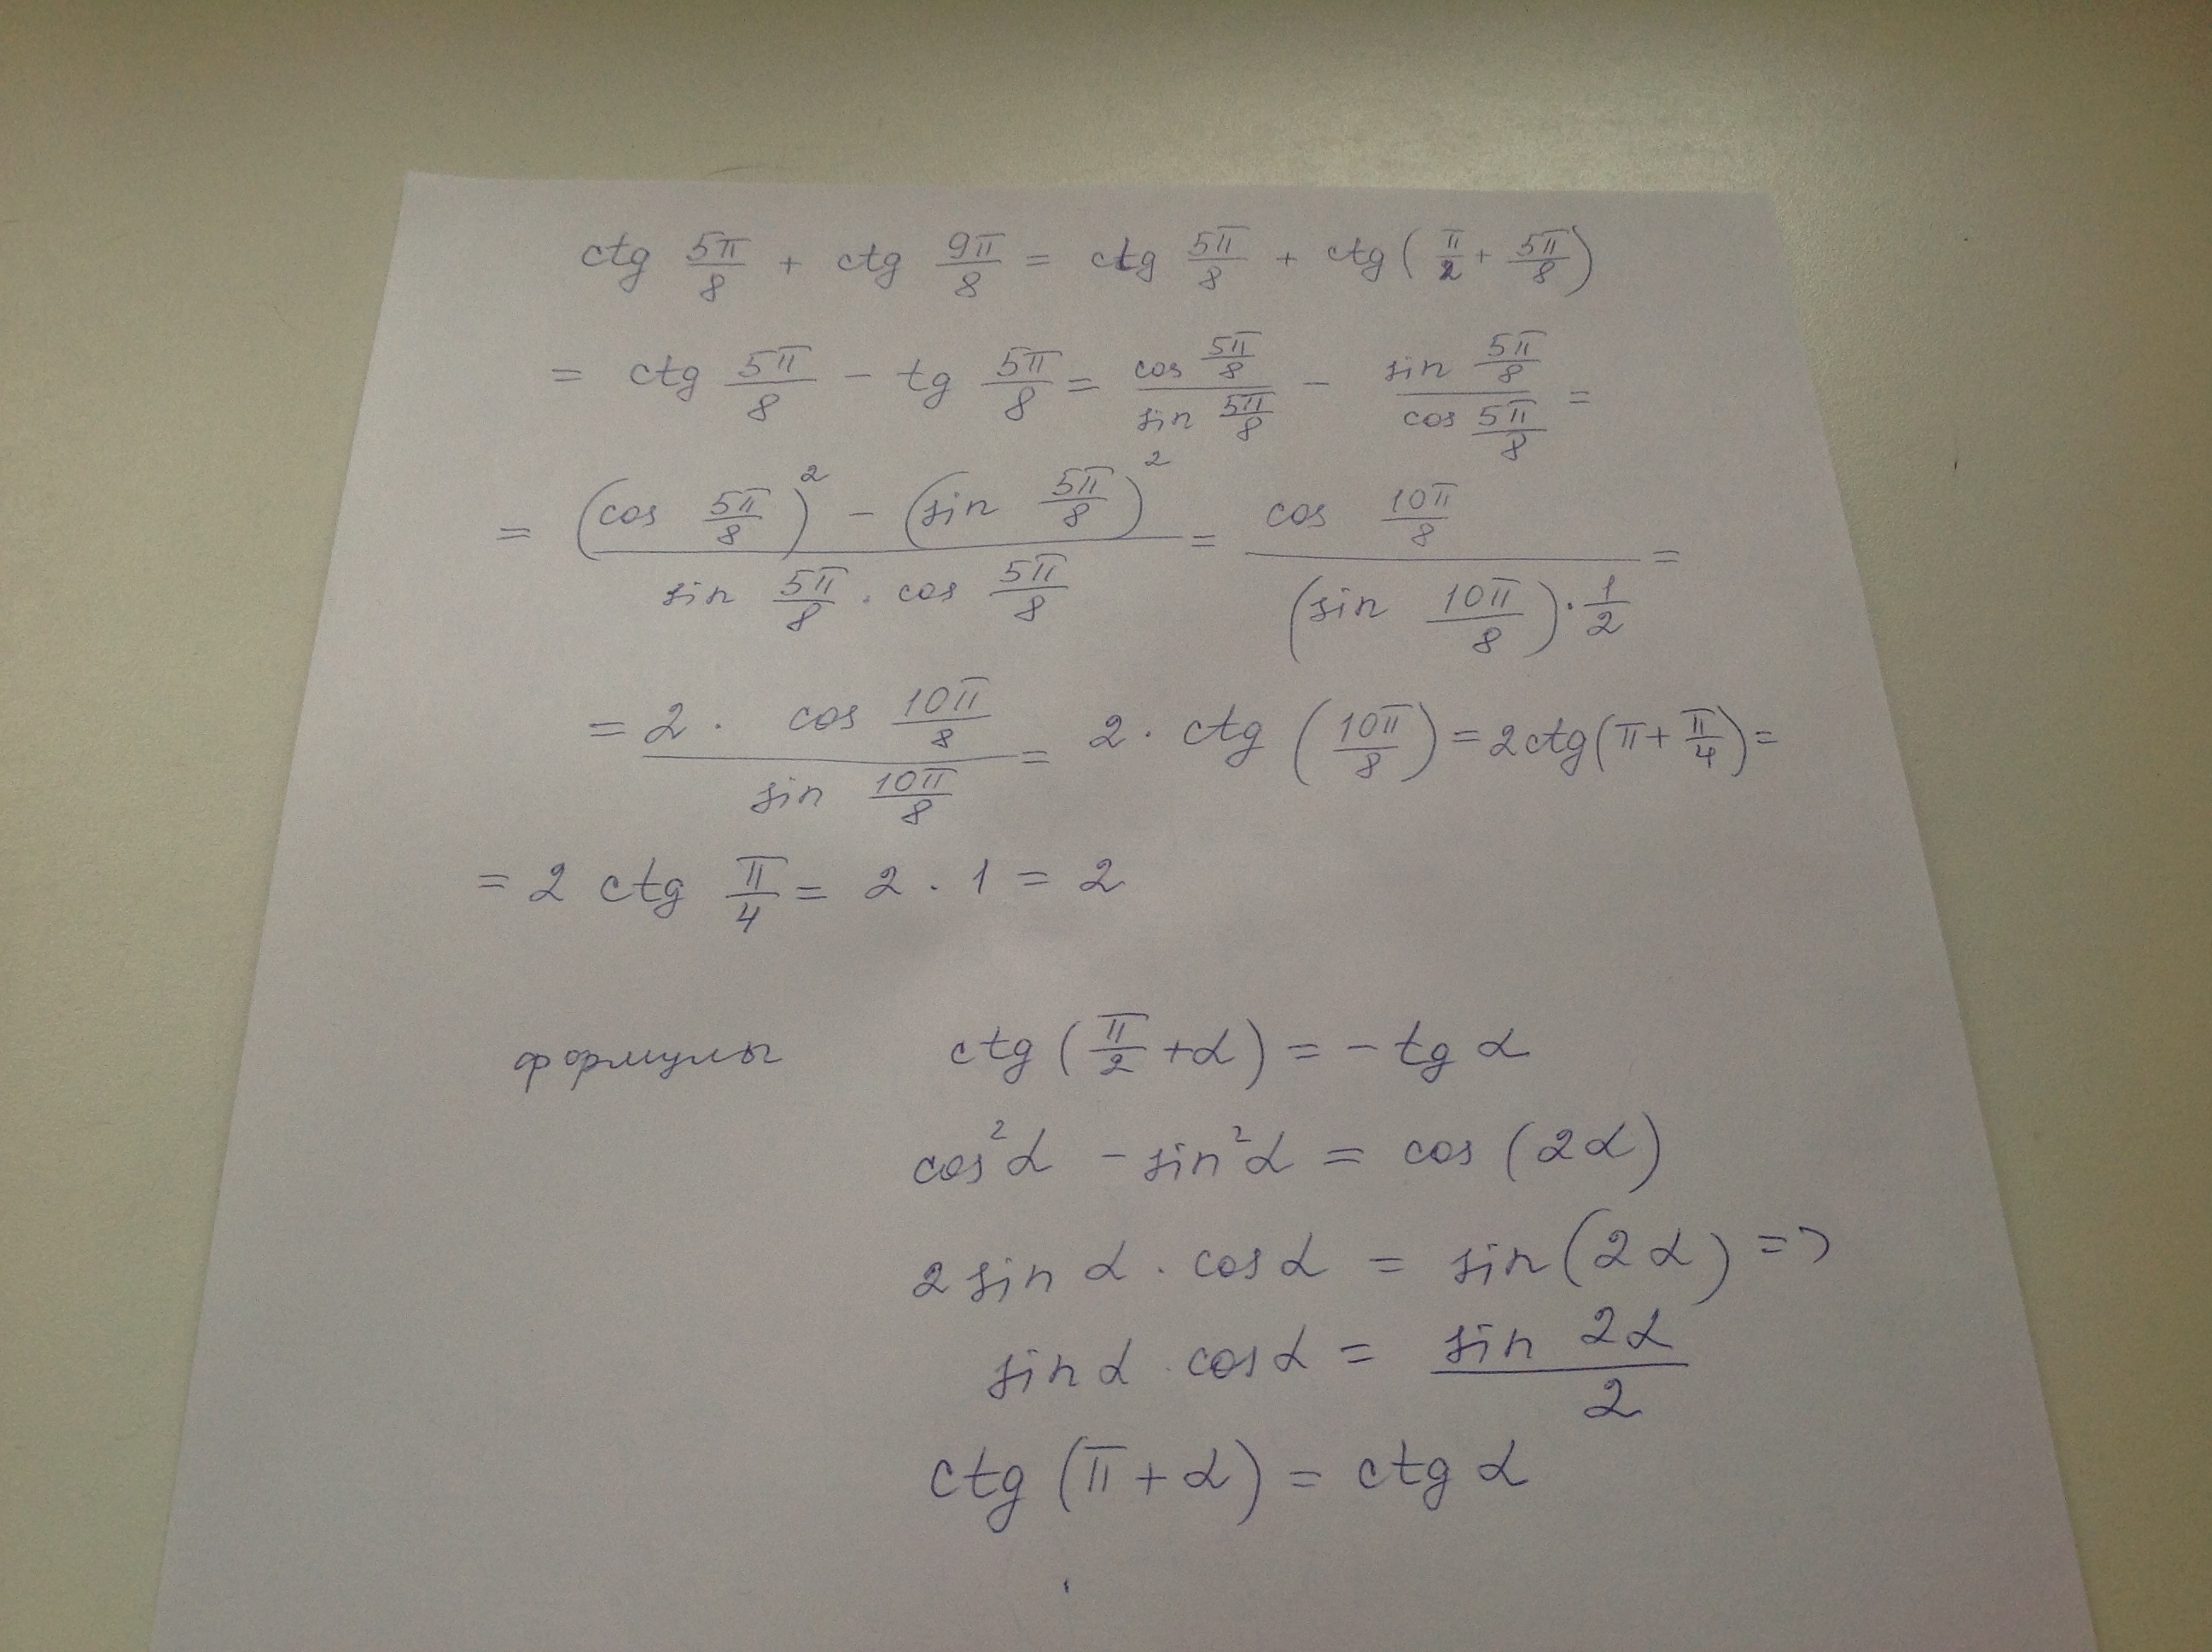 ctg 5π/8 + ctg 9π/8 = ctg 5π/8 + ctg (π/2 + 5π/8)
= ctg 5π/8 - tg 5π/8 = cos 5π/8 / sin 5π/8 - sin 5π/8 / cos 5π/8 =
= (cos 5π/8)² - (sin 5π/8)² / sin 5π/8 · cos 5π/8 = cos 10π/8 / (sin 10π/8) · 1/2 =
= 2 · cos 10π/8 / sin 10π/8 = 2 · ctg (10π/8) = 2 ctg (π + π/4) =
= 2 ctg π/4 = 2 · 1 = 2
формулы ctg (π/2 + α) = - tg α
cos²α - sin²α = cos (2α)
2 sin α · cos α = sin (2α) =>
sin α · cos α = sin 2α / 2
ctg (π + α) = ctg α